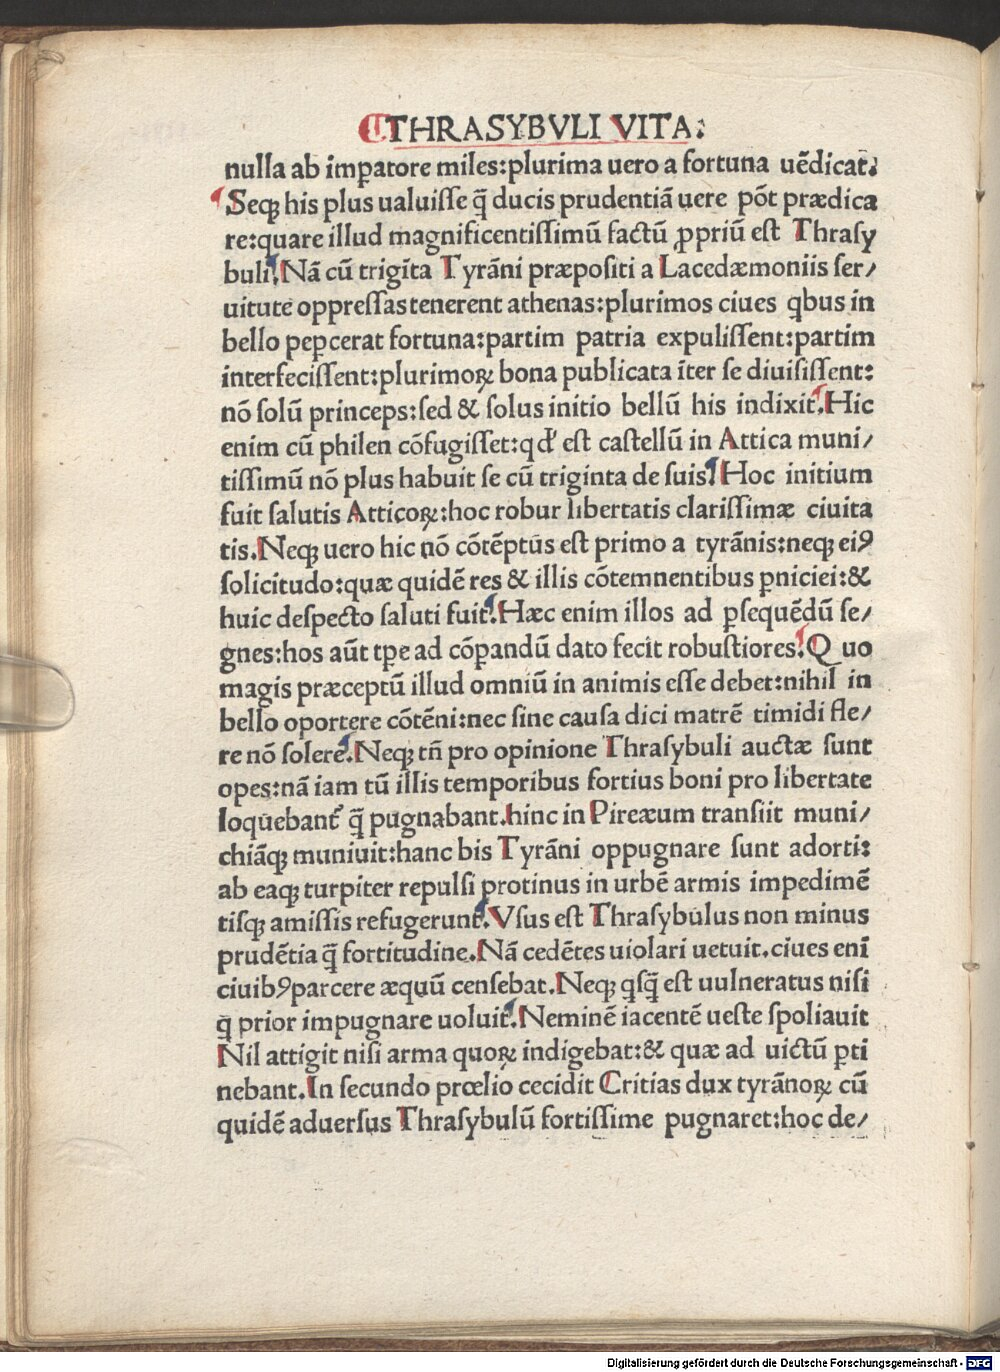 THRASYBVLI VITA.
nulla ab impatore miles:plurima uero a fortuna uẽdicat.
Seqꝫ his plus ualuiſſe q̃ ducis prudentiã uere põt prædica
re:quare illud magnificentiſſimũ factũ ꝓpriũ eſt Thraſy
buli.Nã cũ triginta Tyrãni præpoſiti a Lacedæmoniis ſer/
uitute oppreſſas tenerent athenas:plurimos ciues qbus in
bello peꝑcerat fortuna:partim patria expuliſſent:partim
interfeciſſent:plurimoꝝ bona publicata ĩter ſe diuiſiſſent:
nõ ſolũ princeps:ſed & ſolus initio bellũ his indixit.Hic
enim cũ philen cõfugiſſet:qd' eſt caſtellũ in Attica muni/
tiſſimũ nõ plus habuit ſe cũ triginta de ſuis.Hoc initium
fuit ſalutis Atticoꝝ:hoc robur libertatis clariſſimæ ciuita
tis.Neqꝫ uero hic nõ cõtẽptus eſt primo a tyrãnis:neqꝫ eiꝰ
ſolicitudo:quæ quidẽ res & illis cõtemnentibus ꝑniciei:&
huic deſpecto ſaluti fuit.Hæc enim illos ad ꝑſequẽdũ ſe/
gnes:hos aũt tꝑe ad cõꝑandũ dato fecit robuſtiores.Q uo
magis præceptũ illud omniũ in animis eſſe debet:nihil in
bello oportere cõtẽni:nec ſine cauſa dici matrẽ timidi fle/
re nõ ſolere.Neqꝫ tñ pro opinione Thraſybuli auctæ ſunt
opes:nã iam tũ illis temporibus fortius boni pro libertate
loquebant' q̃ pugnabant.hinc in Pireæum tranſiit muni/
chiãqꝫ muniuit:hanc bis Tyrãni oppugnare ſunt adorti:
ab eaqꝫ turpiter repulſi protinus in urbẽ armis impedimẽ
tiſqꝫ amiſſis refugerunt.Vſus eſt Thraſybulus non minus
prudẽtia q̃ fortitudine.Nã cedẽtes uiolari uetuit.ciues enĩ
ciuibꝰ parcere æquũ cenſebat.Neqꝫ qſq̃ eſt uulneratus niſi
q̃ prior impugnare uoluit.Neminẽ iacentẽ ueſte ſpoliauit
Nil attigit niſi arma quoꝝ indigebat:& quæ ad uictũ ꝑti
nebant.In ſecundo prœlio cecidit Critias dux tyrãnoꝝ cũ
quidẽ aduerſus Thraſybulũ fortiſſime pugnaret:hoc de/
Digitalisierung gefördert durch die Deutsche Forschungsgemeinschaft - DFG